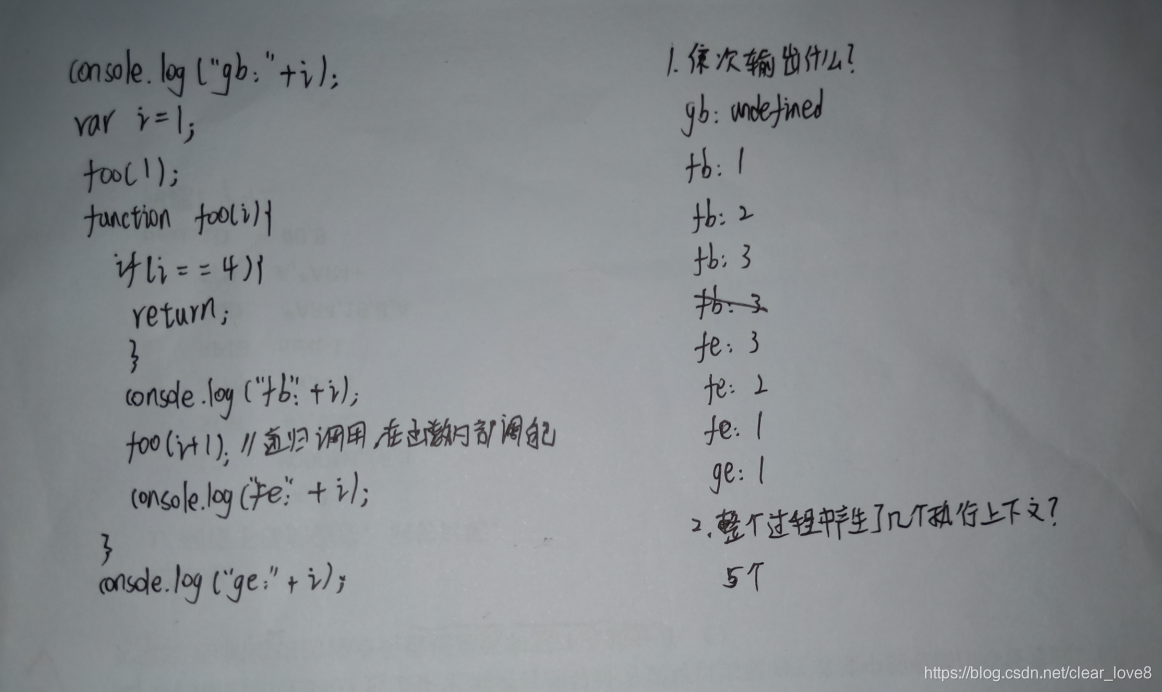 console.log("gb:"+i);
var i=1;
foo(1);
function foo(i){
if(i==4){
return;
}
console.log("fb:"+i);
foo(i+1); //递归调用,在函数内部调自己
console.log("fe:"+i);
}
console.log("ge:"+i);
1.依次输出什么?
gb: undefined
fb: 1
fb: 2
fb: 3
fb: 3
fe: 3
fe: 2
fe: 1
ge: 1
2.整个过程中产生了几个执行上下文?
5个
https://blog.csdn.net/clear_love8